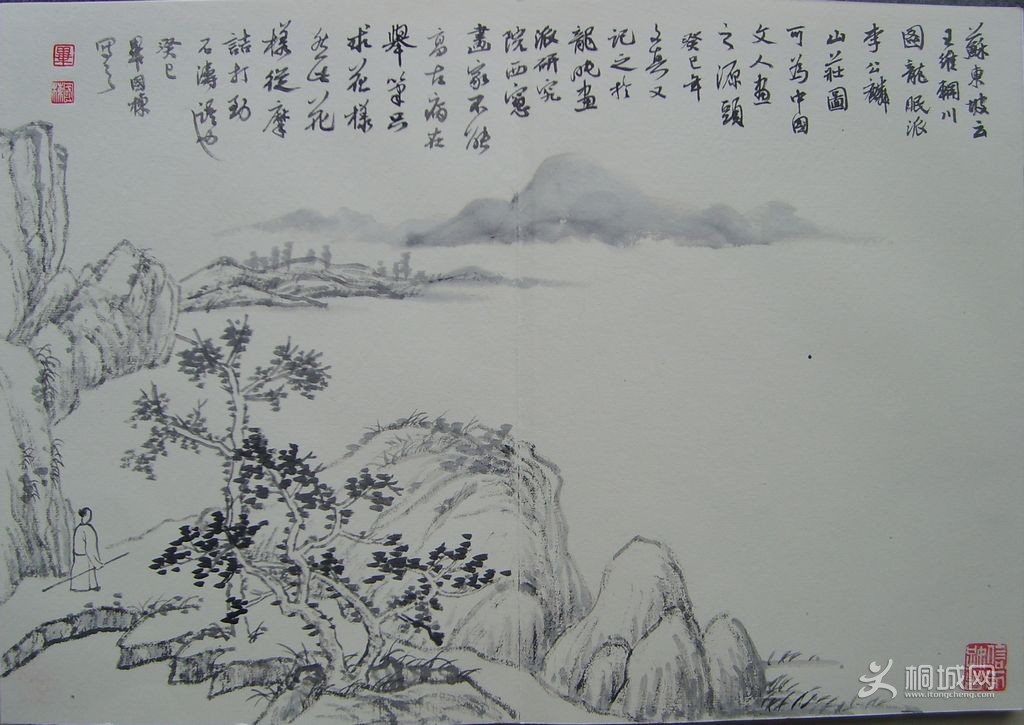 蘇東坡云
王維輞川
圖龍眠派
李公麟
山莊圖
可為中國
文人畫
之源頭
癸巳年
又
記之於
龍眠畫
派研究
院西窗
畫家不能
高古病在
舉筆只
求花樣
然此花
樣從摩
詰打動
石濤語也
癸巳
畢國棟
寫之
桐城网
www.itongcheng.com